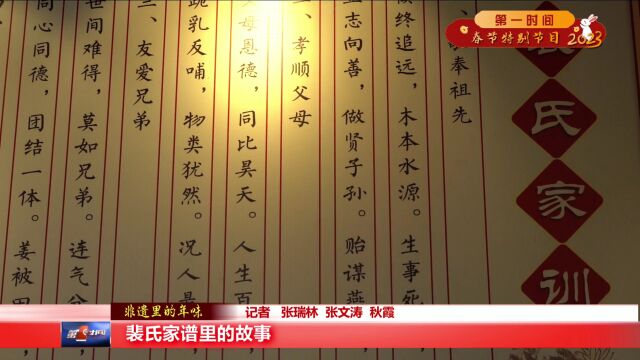 第一时间
春节特别节目 2023
氏家训
奉祖先
终追远，木本水源。生事死
志向善，做贤子孙。贻谋燕
、孝顺父母
父母恩德，同比昊天。人生百
跪乳反哺，物类犹然。况人
三、友爱兄弟
世间难得，莫如兄弟。连气
同心同德，团结一体。姜被田
非遗里的年味
记者 张瑞林 张文涛 秋霞
裴氏家谱里的故事